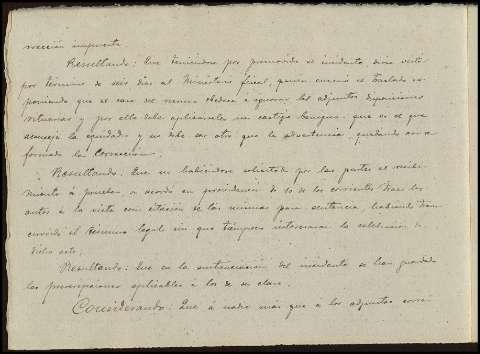 rrección impuesta
Resultando: Que teniéndose por promovido el incidente, diose vista
por término de seis días al Ministerio fiscal, quien evacuó el traslado ex-
poniendo que el caso del mismo obedece á ignorar los adjuntos disposiciones
y por ello debe aplicárseles un castigo benigno que es el que
aconseja la equidad y no debe ser otro que la advertencia, quedando así re-
formada la Corrección.
Resultando: Que no habiéndose solicitado por las partes el recibi-
miento á prueba, se acordó en providencia de 10 de los corrientes traer los
autos á la vista con citación de las mismas para sentencia, habiendo tran-
currido el término legal sin que tampoco interesaran la celebración de
dicho acto.
Resultando: Que en la sustanciación del incidente se han guardado
las prescripciones aplicables á los de su clase.
Considerando: Que á nadie más que a los adjuntos corre